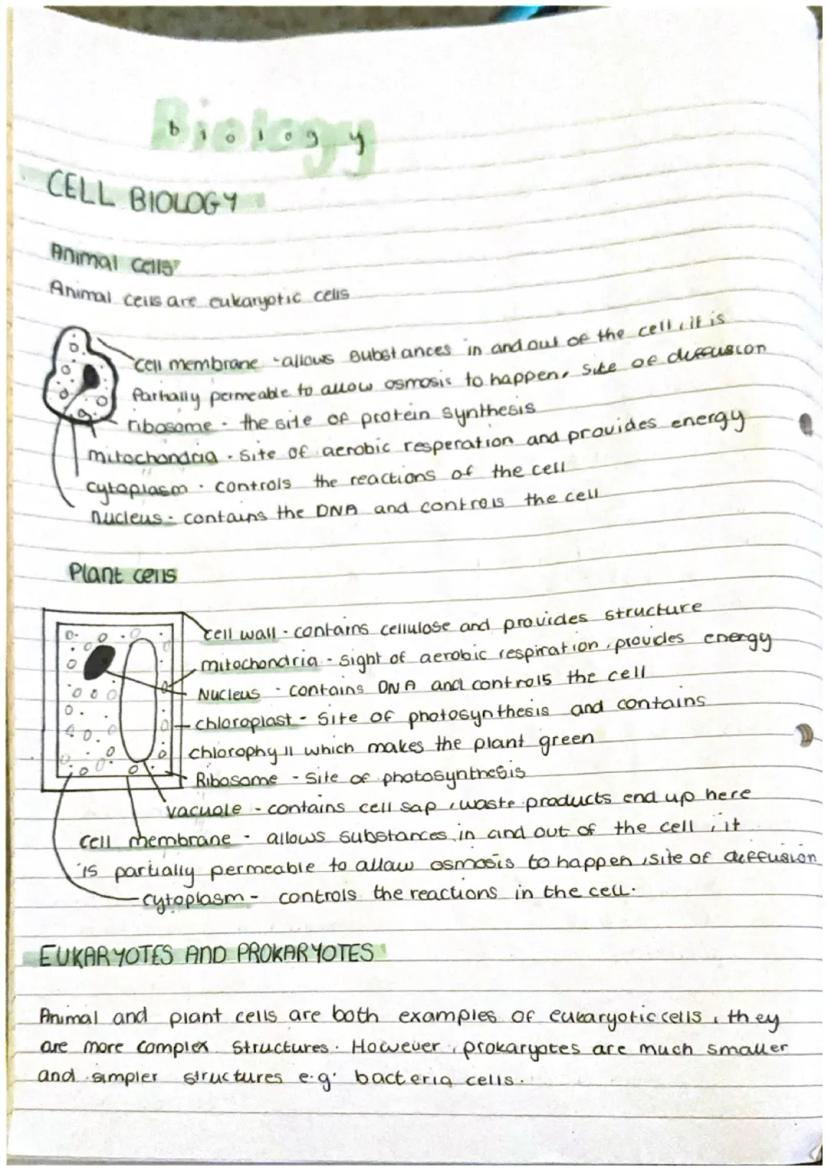 Biology
biology
CELL BIOLOGY
Animal cells
Animal cells are eukaryotic cells
cell membrane - allows substances in and out of the cell, it is
Partially permeable to allow osmosis to happen, site of diffusion
ribosome - the site of protein synthesis
mitochondria - site of aerobic resperation and provides energy
cytoplasm - controls the reactions of the cell
nucleus - contains the DNA and controls the cell
Plant cells
cell wall - contains cellulose and provides structure
mitochondria - sight of aerobic respiration, provides energy
Nucleus - contains DNA and controls the cell
chloroplast - site of photosynthesis and contains
chlorophyll which makes the plant green
Ribosome - site of photosynthesis
vacuole - contains cell sap, waste products end up here
cell membrane - allows substances in and out of the cell, it
is partially permeable to allow osmosis to happen, site of diffusion
cytoplasm - controls the reactions in the cell.
EUKARYOTES AND PROKARYOTES
Animal and plant cells are both examples of eukaryotic cells, they
are more complex structures. However, prokaryotes are much smaller
and simpler structures e.g. bacteria cells.